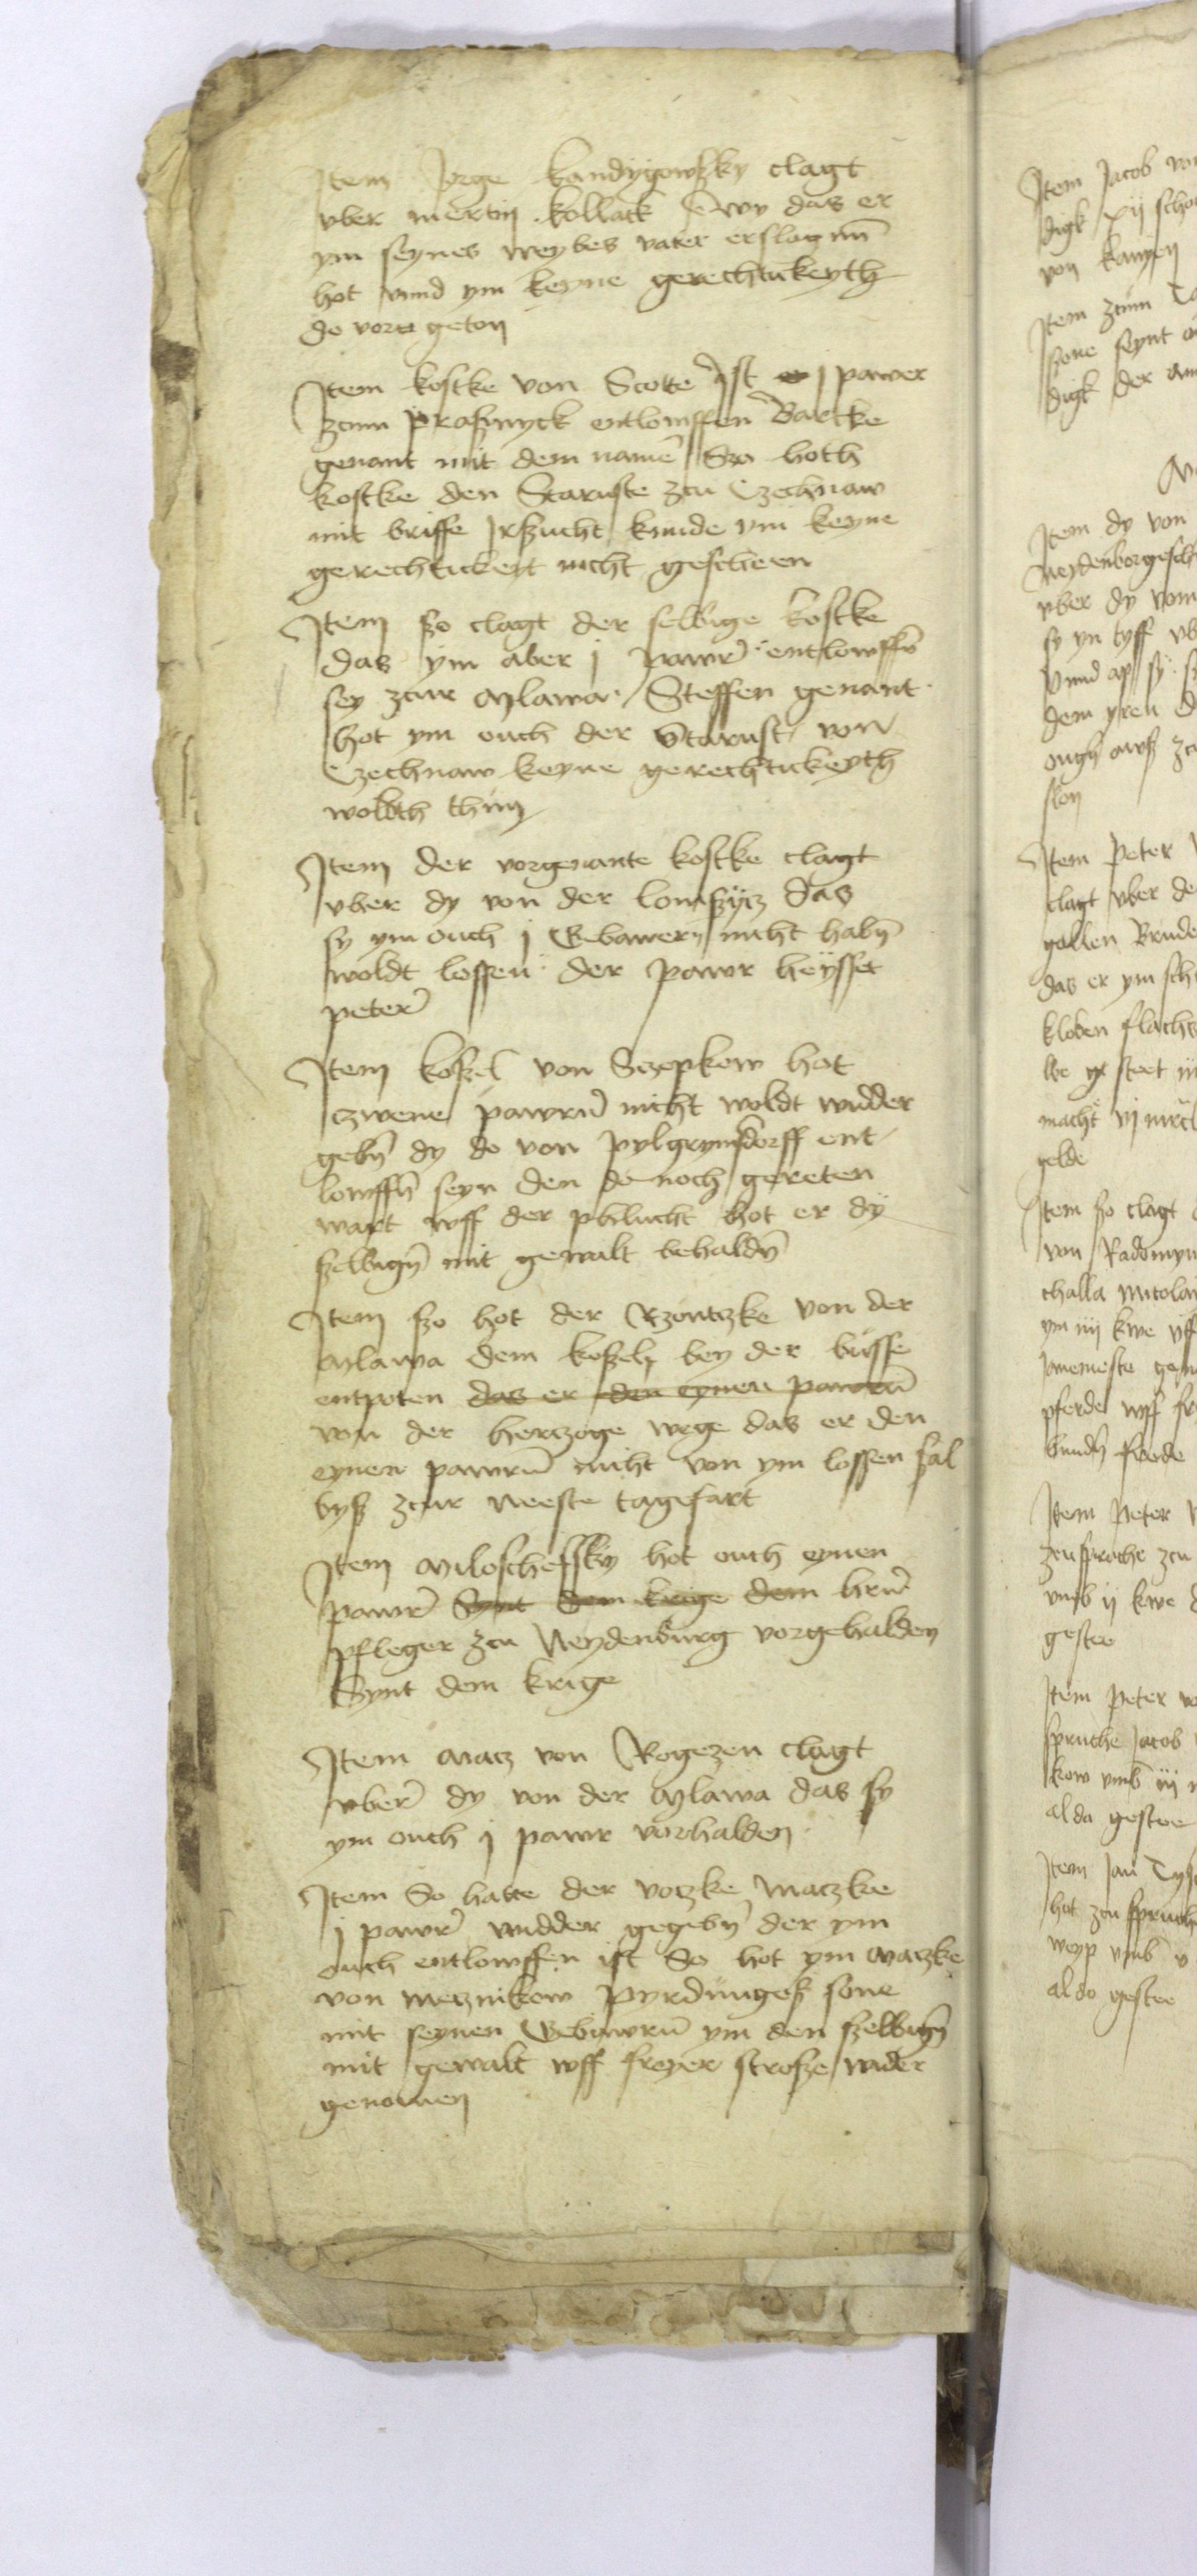 Item Jorge kandygowsky clagt
vber mertin kollack wy das er
ym seynes weybes vater erslagnn
hot vnnd ym keyne gerechtickeyth
do vore geton
Item kostke von Scotte Ist j pawer
zcum prasnyck entlowffen Bartke
genant mit dem name Szo hoth
kostke den Staruste zcu Czechnaw
mit briffe Irszucht kunde ym keyne
gerechtickeyt nicht gescheen
Item szo clagt der selbige kostke
das ym aber j pawer entlowffn
sey zcur Mlawa Steffen genant
hot ym ouch der Starust von
Czechnaw keyne gerechtickeyth
woldth thun
Item der vorgenante kostke clagt
vber dy von der lomszycz das
sy ym ouch j Gebawern nicht habn
woldt lossen der pawr heysset
peter
Item koszel von Sczepkow hot
czwene pawrn nicht woldt widder
gebn dy do von pylgrymsdorff ent
lowffn seyn den do noch gereten
wart wff der pflucht hot er dy
szelbign mit gewalt behaldn
Item szo hot der Rzontczke von der
Mlawa dem koszel bey der busse
entpoten das er den eynen pawrn
von der herczoge wege das er den
eynen pawrn nicht von ym lossen sal
bysz zcur neeste tagefart
Item Miloscheffsky hot ouch eynen
pawer Synt dem krige dem hrn
pfleger zcu Neydenburg vorgehalden
Synt dem krige
Item Macz von Rogezen clagt
vber dy von der Mlawa das sy
ym ouch j pawr vorhalden
Item So hatte der votzke Maczke
j pawer widder gegebn der ym
ouch entlowffen ist So hot ym Maczke
von Wetznikow pyrdungesz sone
mit seynen Gebawrn ym den szelbign
mit gewalt wff freyer strosze wider
genomen
Item Jacob von
digk xij scho
von kanyen
Item zcum
szone seynt
digk der am
Item dy von
Neydenborgesch
vber dy vom
sy yn tyff vb
Vnnd ap sy
dem yren
ougn awsz zcu
slon
Item Peter
clagt vber de
gallen Brude
das er ym sch
kloben flachs
macht vj mrc
gelde
Item szo clagt
von Radomyn
challa Micolay
ym iiij kwe vff
pferde wff fr
Item Peter
zcusproche zcu
vmb ij kwe
gestee
Item Peter vo
spruche Jacob
kow vmb iij
al do gestee
Item Jan
hot zcu spruch
weyp vmb v
al do gestee